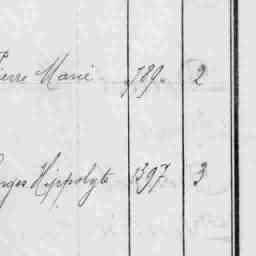 Pierre Marie 789 2
Georges Hippolyte 1397 3